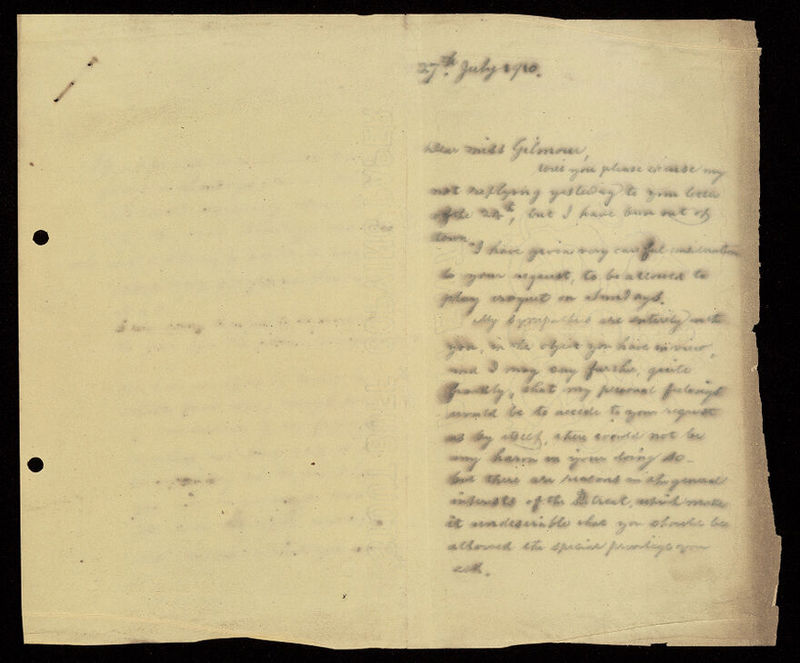 27th July 1910.
Dear Miss Gilmour,
Will you please excuse my
not replying yesterday to your letter
of the , but I have been out of
town.
I have given very careful consideration
to your request, to be allowed to
play croquet on Sundays.
My sympathies are entirely with
you, in the object you have in view,
and I may say further, quite
frankly, that my personal feelings
would be to accede to your request
as by itself, there would not be
any harm in your doing so -
but there are reasons in the general
interests of the Retreat, which make
it undesirable that you should be
allowed the special privilege you
ask.